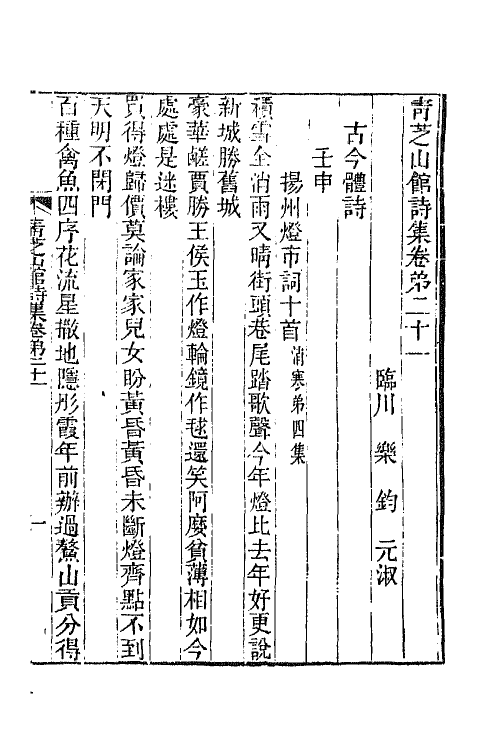 青芝山館詩集卷弟二十一
臨川 樂 鈞 元淑
古今體詩
壬申
揚州燈市詞十首 清寒弟四集
積雪全消雨又晴街頭巷尾踏歌聲今年燈比去年好更說
新城勝舊城
豪華鹺賈勝王侯玉作燈輪鏡作毬還笑阿麼貧薄相如今
處處是迷樓
買得燈歸價莫論家家兒女盼黃昏黃昏未斷燈齊點不到
天明不閉門
百種禽魚四序花流星撒地隱彤霞年前辦過鰲山貢分得
青芝山館詩集卷弟二十一
一